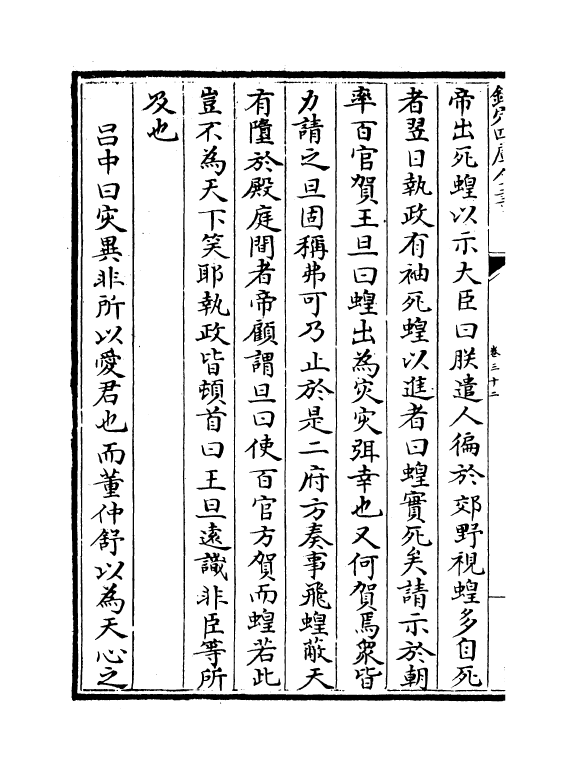 欽定四庫全書
卷三十二
帝出死蝗以示大臣曰朕遣人徧於郊野視蝗多自死
者翌日執政有袖死蝗以進者曰蝗實死矣請示於朝
率百官賀王旦曰蝗出為災災弭幸也又何賀焉衆皆
力請之旦固稱弗可乃止於是二府方奏事飛蝗蔽天
有墮於殿庭間者帝顧謂旦曰使百官方賀而蝗若此
豈不為天下笑耶執政皆頓首曰王旦遠識非臣等所
及也
呂中曰灾異非所以愛君也而董仲舒以為天心之